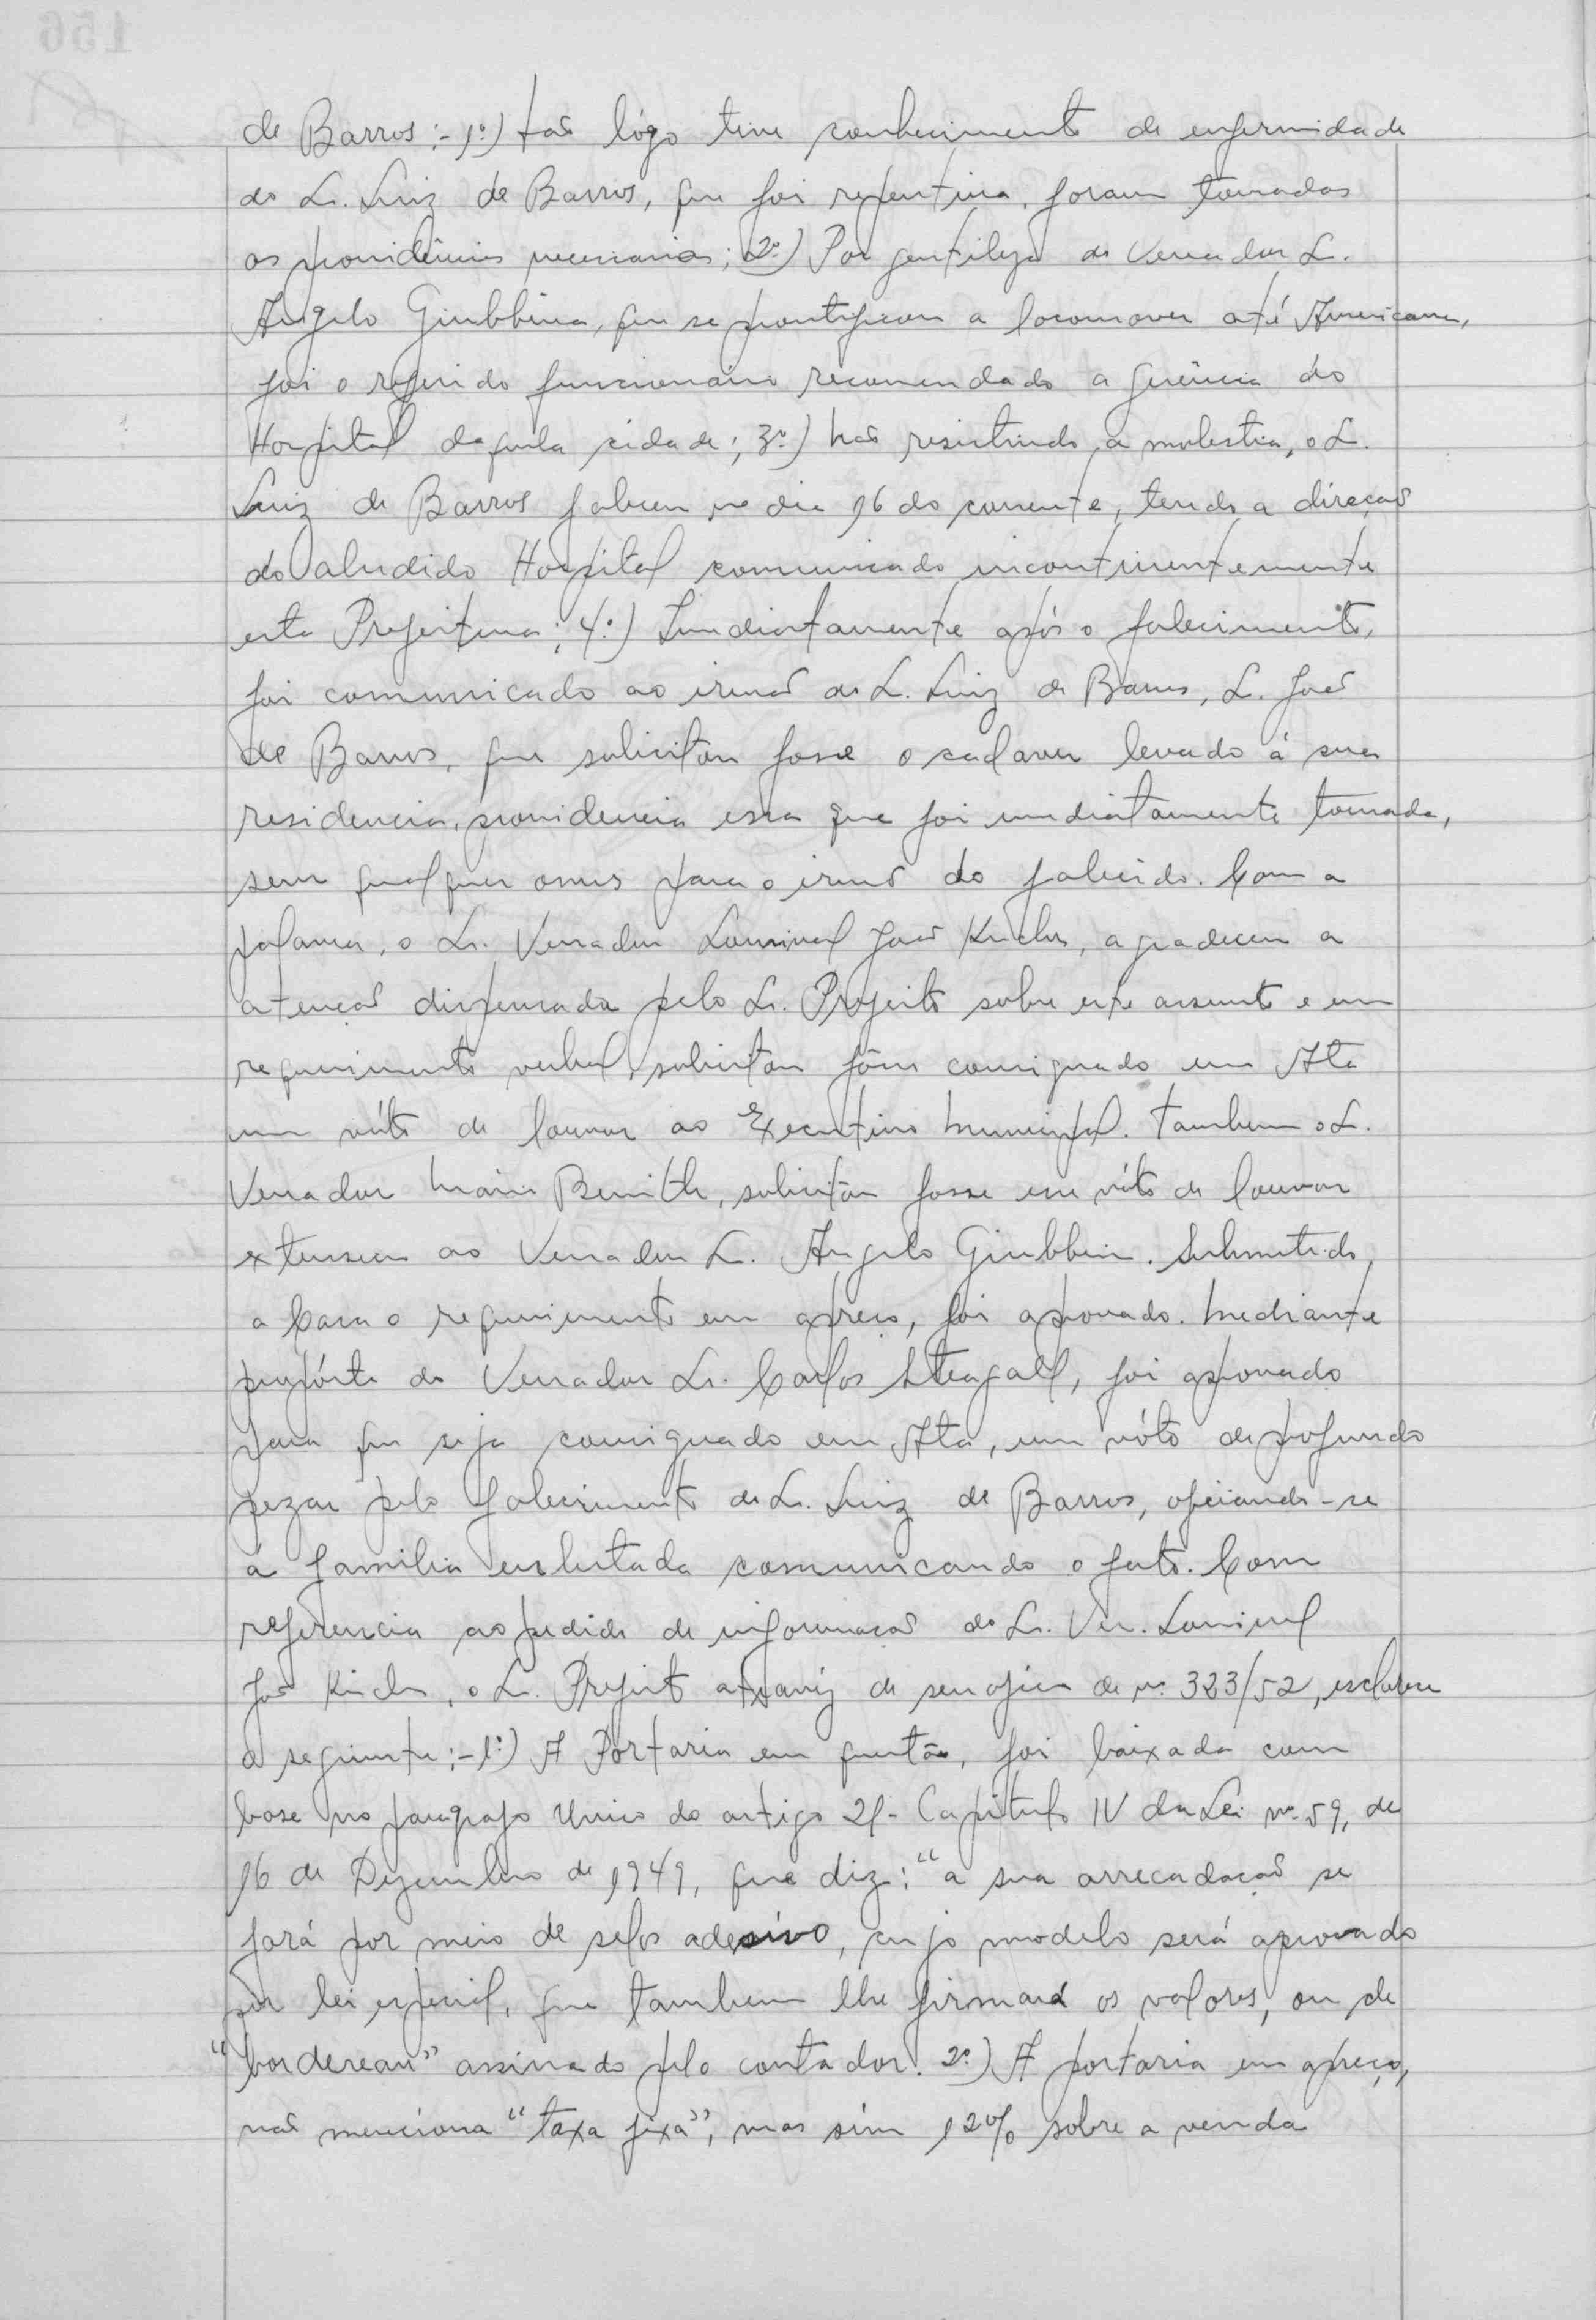 de Barros:- 1º) tão lógo teve conhecimento da enfermidade
do Sr. Luiz de Barros, que foi repentina, foram tomadas
as providências necessarias; 2º) Por gentileza do Vereador Sr.
Angelo Giubbina, que se prontificou a locomover até Americana,
foi o referido funcionario recomendado a gerência do
Hospital daquela cidade; 3º) Não resistindo a molestia, o Sr.
Luiz de Barros faleceu no dia 16 do corrente, tendo a direção
do aludido Hospital comunicado incontinentemente
esta Prefeitura; 4º) Imediatamente após o falecimento,
foi comunicado ao irmão do Sr. Luiz de Barros, Sr. José
de Barros, que solicitou fosse o cadaver levado á sua
residencia, providencia essa que foi imediatamente tomada,
sem qualquer onus para o irmão do falecido. Com a
palavra, o Sr. Vereador Lourival José Kirche, agradeceu a
atenção dispensada pelo Sr. Prefeito sobre este assunto e em
requerimento verbal, solicitou fôsse consignado em Ata
um vóto de louvor ao Executivo Municipal. Tambem o Sr.
Vereador Mario Benith, solicitou fosse esse vóto de louvor
extensivo ao Vereador Sr. Angelo Giubbina. Submetido,
a Casa o requerimento em apreço, foi aprovado. Mediante
propósta do Vereador Sr. Carlos Steagall, foi aprovado
para que seja consignado em Ata, um vóto de profundo
pezar pelo falecimento do Sr. Luiz de Barros, oficiando-se
á familia enlutada comunicando o fato. Com
referencia ao pedido de informação do Sr. Ver. Lourival
José Kirche, o Sr. Prefeito atravéz de seu oficio de nº 323/52, esclarece
o seguinte:- 1º) A Portaria em questão, foi baixada com
base no paragrafo Unico do artigo 21- Capitulo IV da Lei nº 59, de
16 de Dezembro de 1949, que diz: "a sua arrecadação se
fará por meio de selos adesivo, cujo modelo será aprovado
por lei especial, que tambem lhe firmará os valores, ou de
"bordereau" assinado pelo contador. 2º) A portaria em apreço,
não menciona "taxa fixa", mas sím 12% sobre a venda